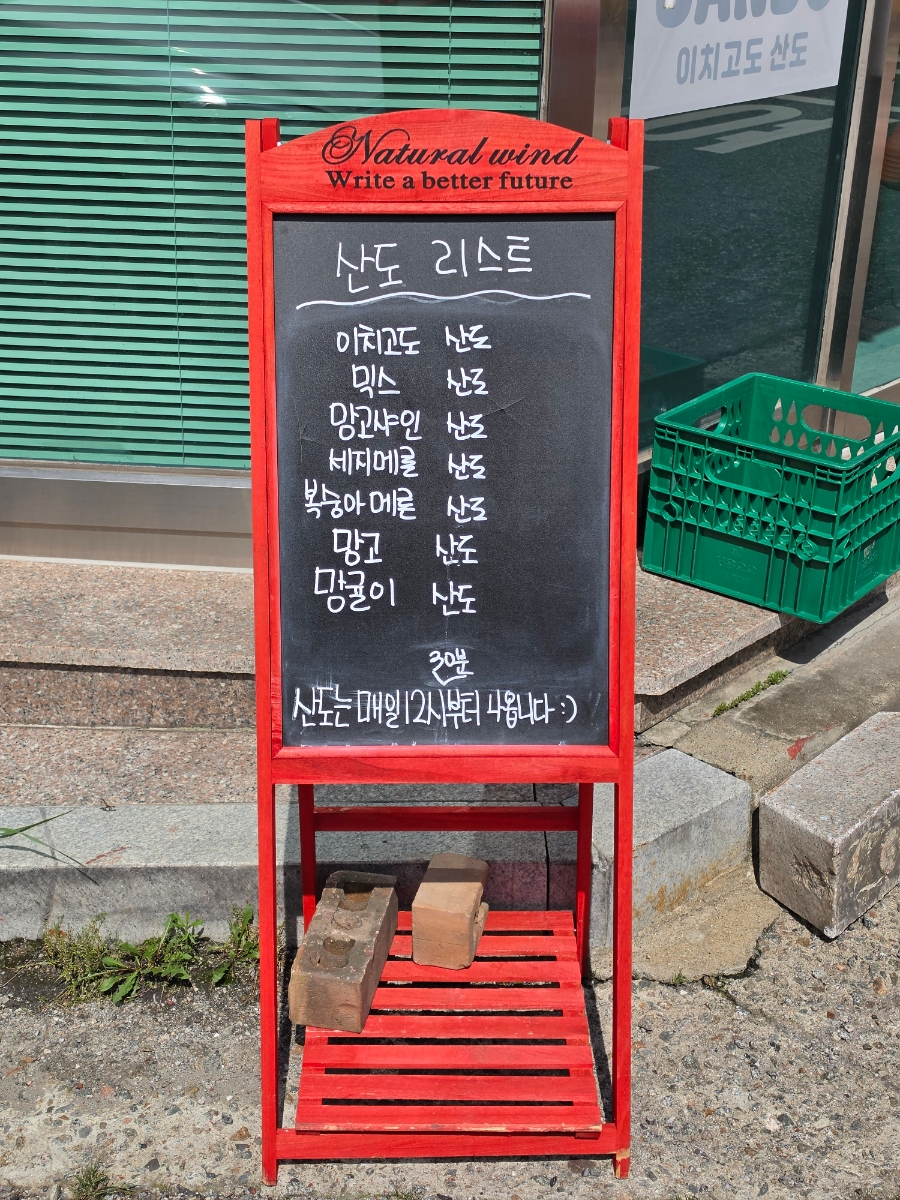 SANDO
이치고도 산도
Natural wind
Write a better future
산도 리스트
이치고도 산도
믹스 산도
망고샤인 산도
세지메론 산도
복숭아 메론 산도
망고 산도
망귤이 산도
30분
산도는 매일 12시부터 나옵니다 :)